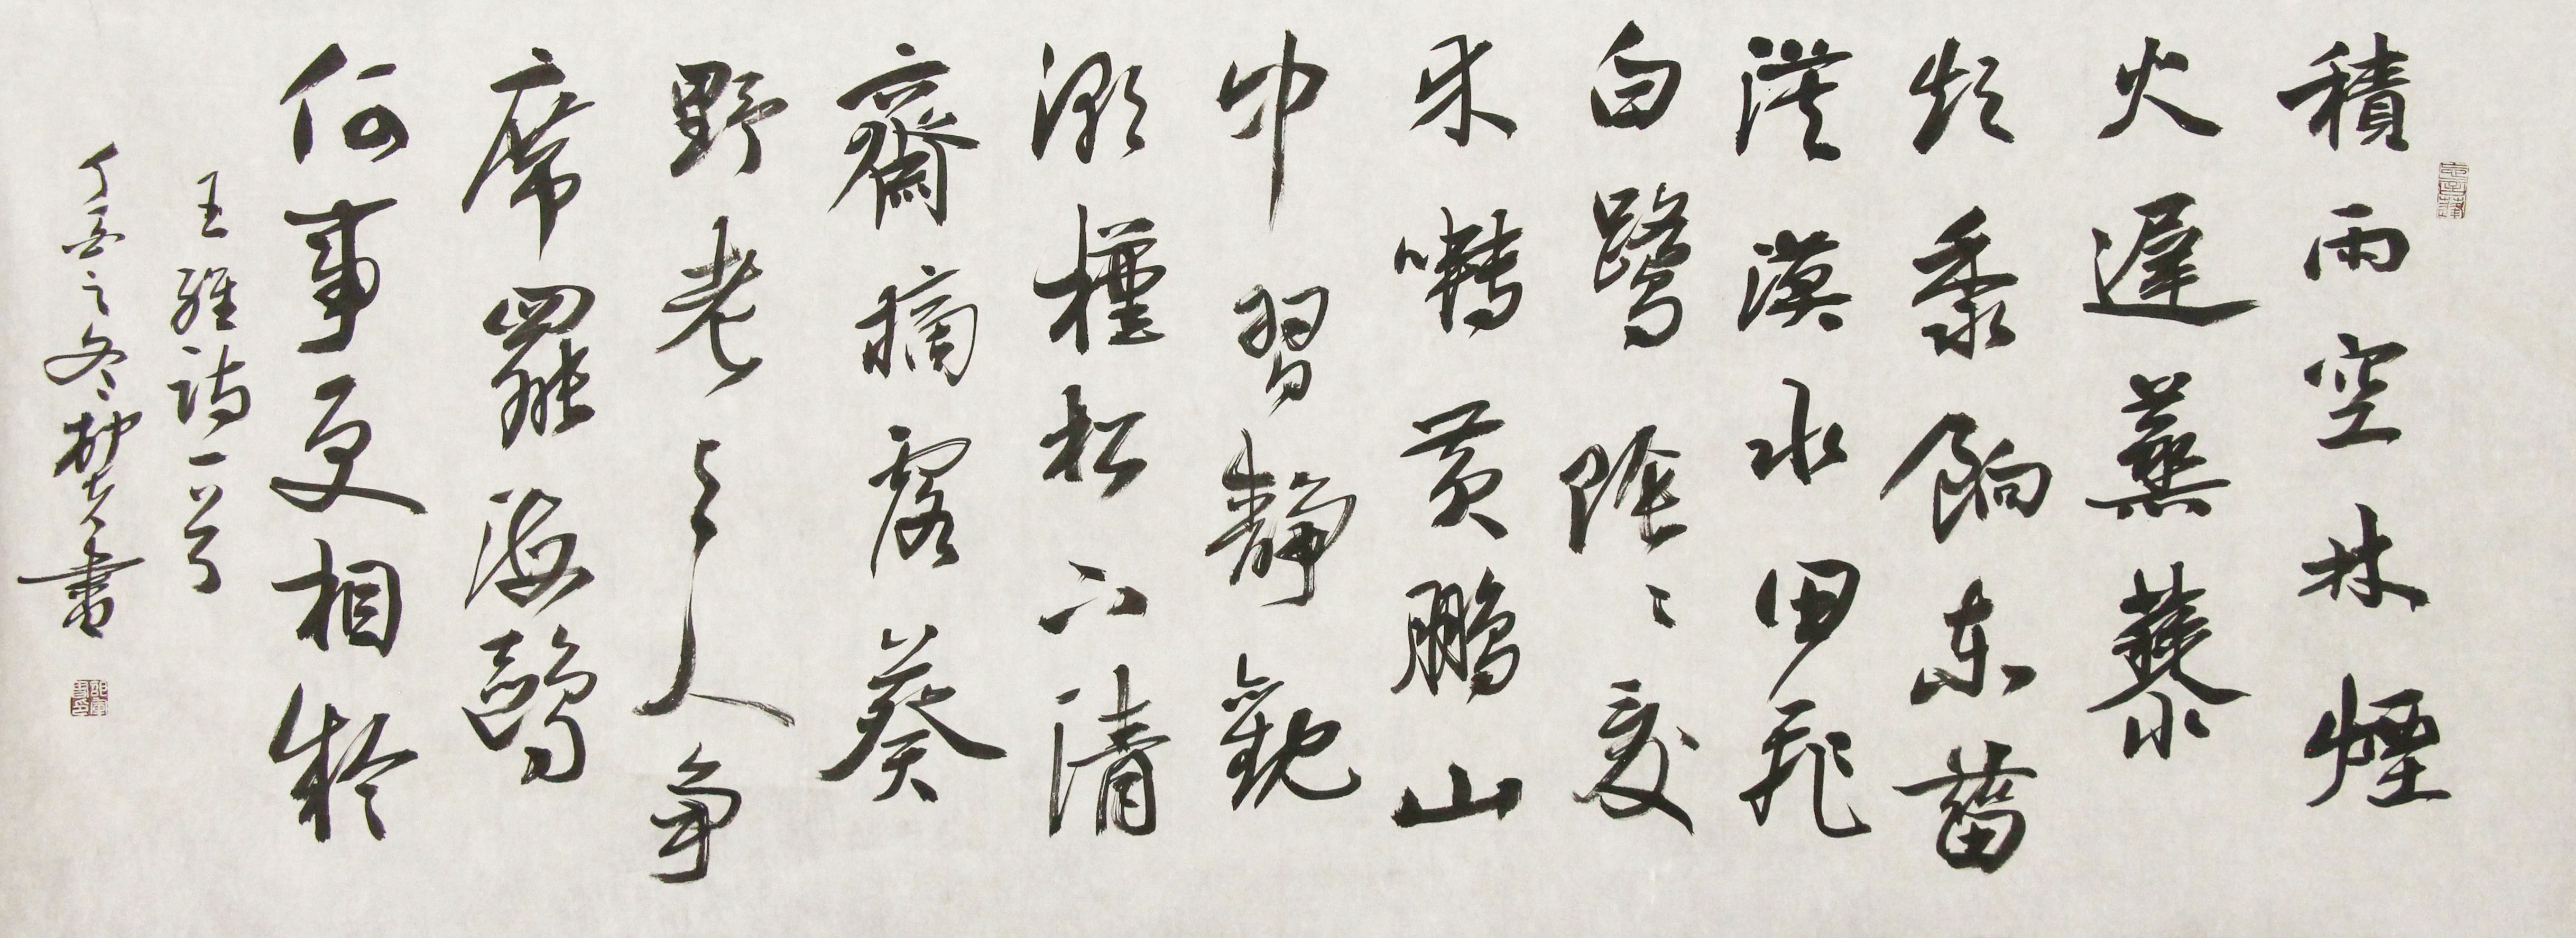 積雨空林煙
火遲蒸藜
炊黍餉東菑
漠漠水田飛
白鷺陰々夏
木囀黃鸝山
中習靜觀
朝槿松下清
齋摘露葵
野老與人爭
席罷海鷗
何事更相疑
王維詩一首
丁酉之冬書